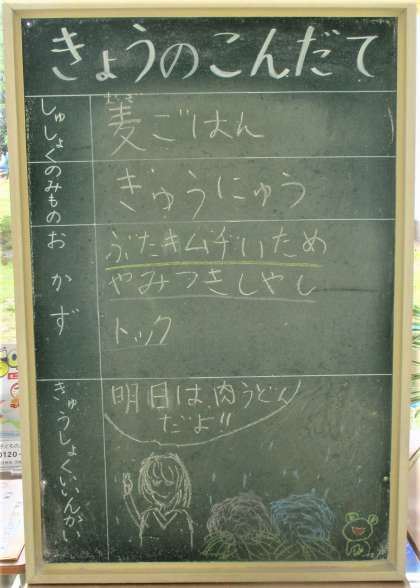 きょうのこんだて
しゅしょく
麦ごはん
むぎ
のみもの
ぎゅうにゅう
おかず
ぶたキムチいため
やみつきもやし
トック
きゅうしょくいいんかい
明日は、肉うどん
だよ!!
0120-